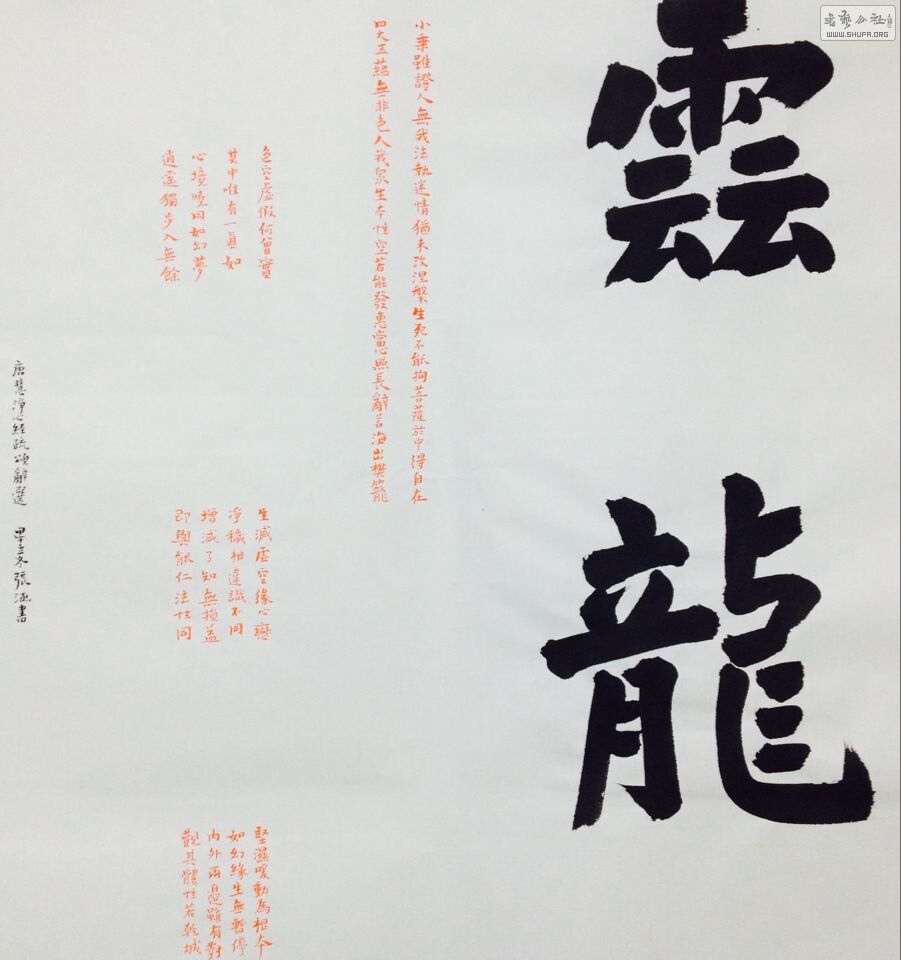 書藝公社
WWW.SHUFA.ORG
雲龍
小乗雖證人無我法執迷情猶未改涅槃生死不能拘菩薩於中得自在
四大五蘊無非色人我衆生本性空若能發惠當心照長辭苦海出樊籠
色空虛假何曾實
其中唯有一真如
心境曉同如幻夢
逍遥獨步入無餘
生滅虛空缘心變
净穢相違識不同
增減了知無損益
即與能仁法性同
堅濕暖動為根本
如幻緣生無暫停
内外兩邊雖有對
觀其體性若乾城
唐慧净心經疏頌辭選 甲午冬張涵書